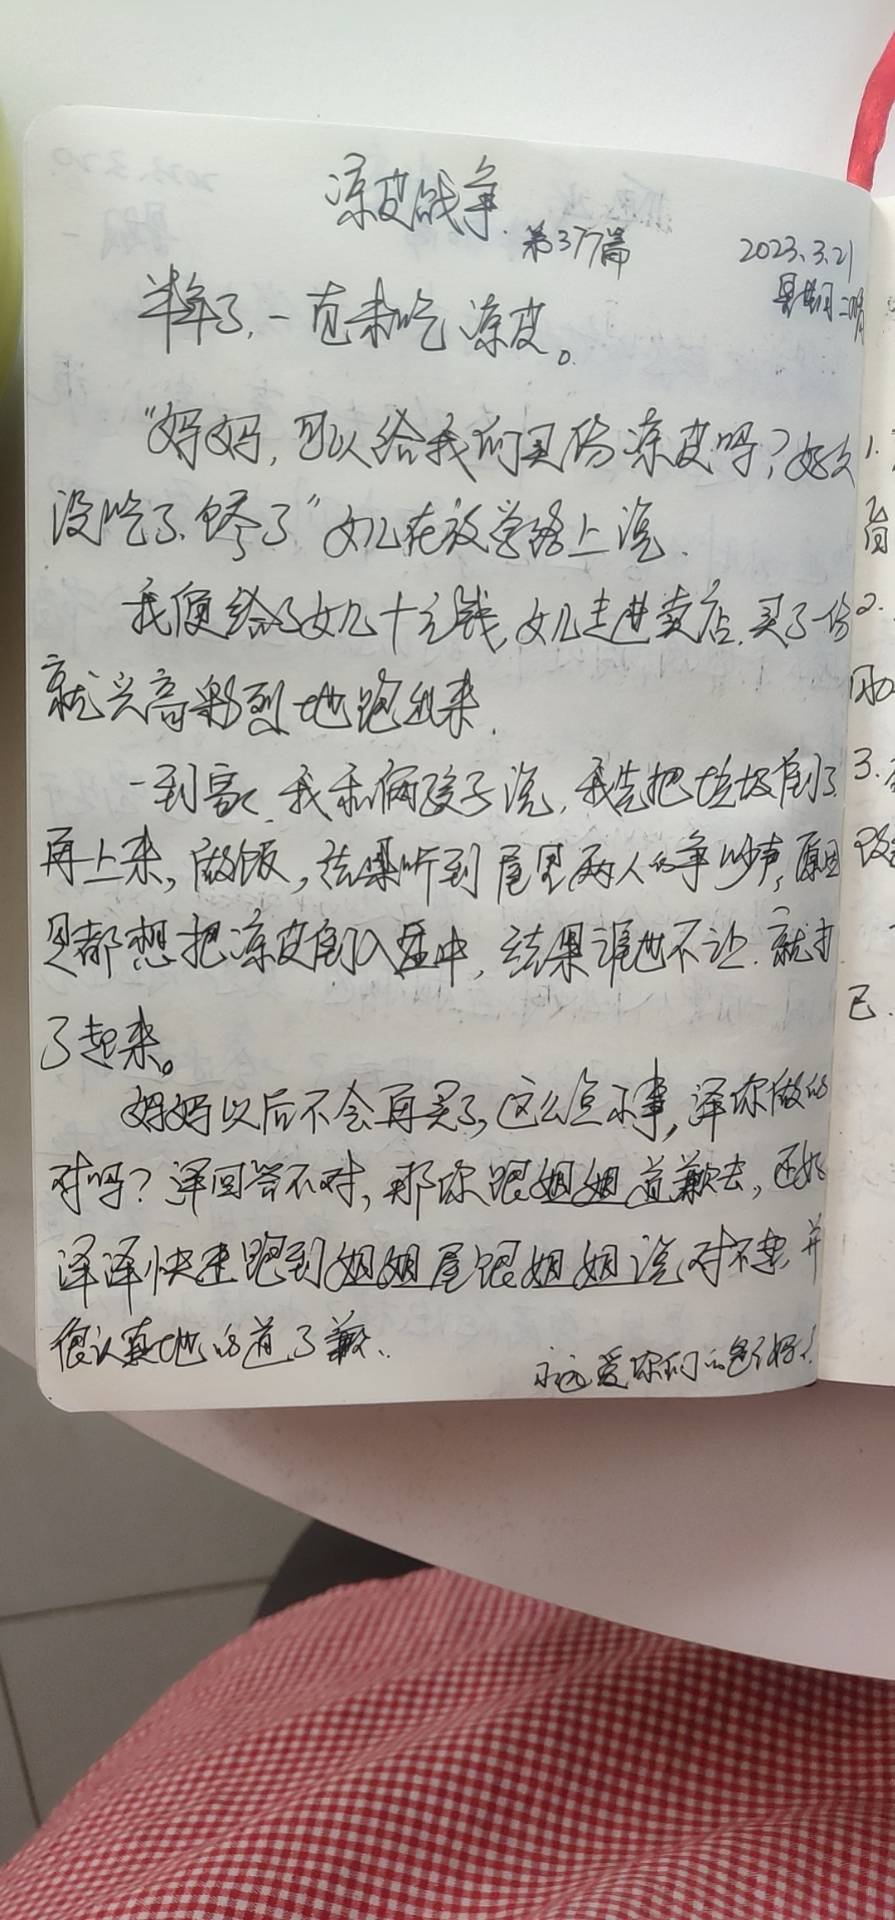 凉皮战争.
第377篇
2023.3.21
星期二 晴
半年了,一直未吃凉皮。
“妈妈,可以给我们买份凉皮吗?好久
没吃了.馋了”女儿在放学路上说.
我便给了女儿十元钱,女儿走进卖店.买了一份
就兴高彩烈地跑出来.
一到家,我和俩孩子说,我先把垃圾倒了
再上来,做饭,结果听到屋里两人的争吵声,原因
是都想把凉皮倒入盆中,结果谁也不让.就打
了起来。
妈妈以后不会再买了,这么点小事,泽你做的
对吗?泽回答不对,那你跟姐姐道歉去,还好
泽泽快速跑到姐姐屋跟姐姐说对不起,并
很认真地的道了歉.
永远爱你们的
1.
2.
3.
己.